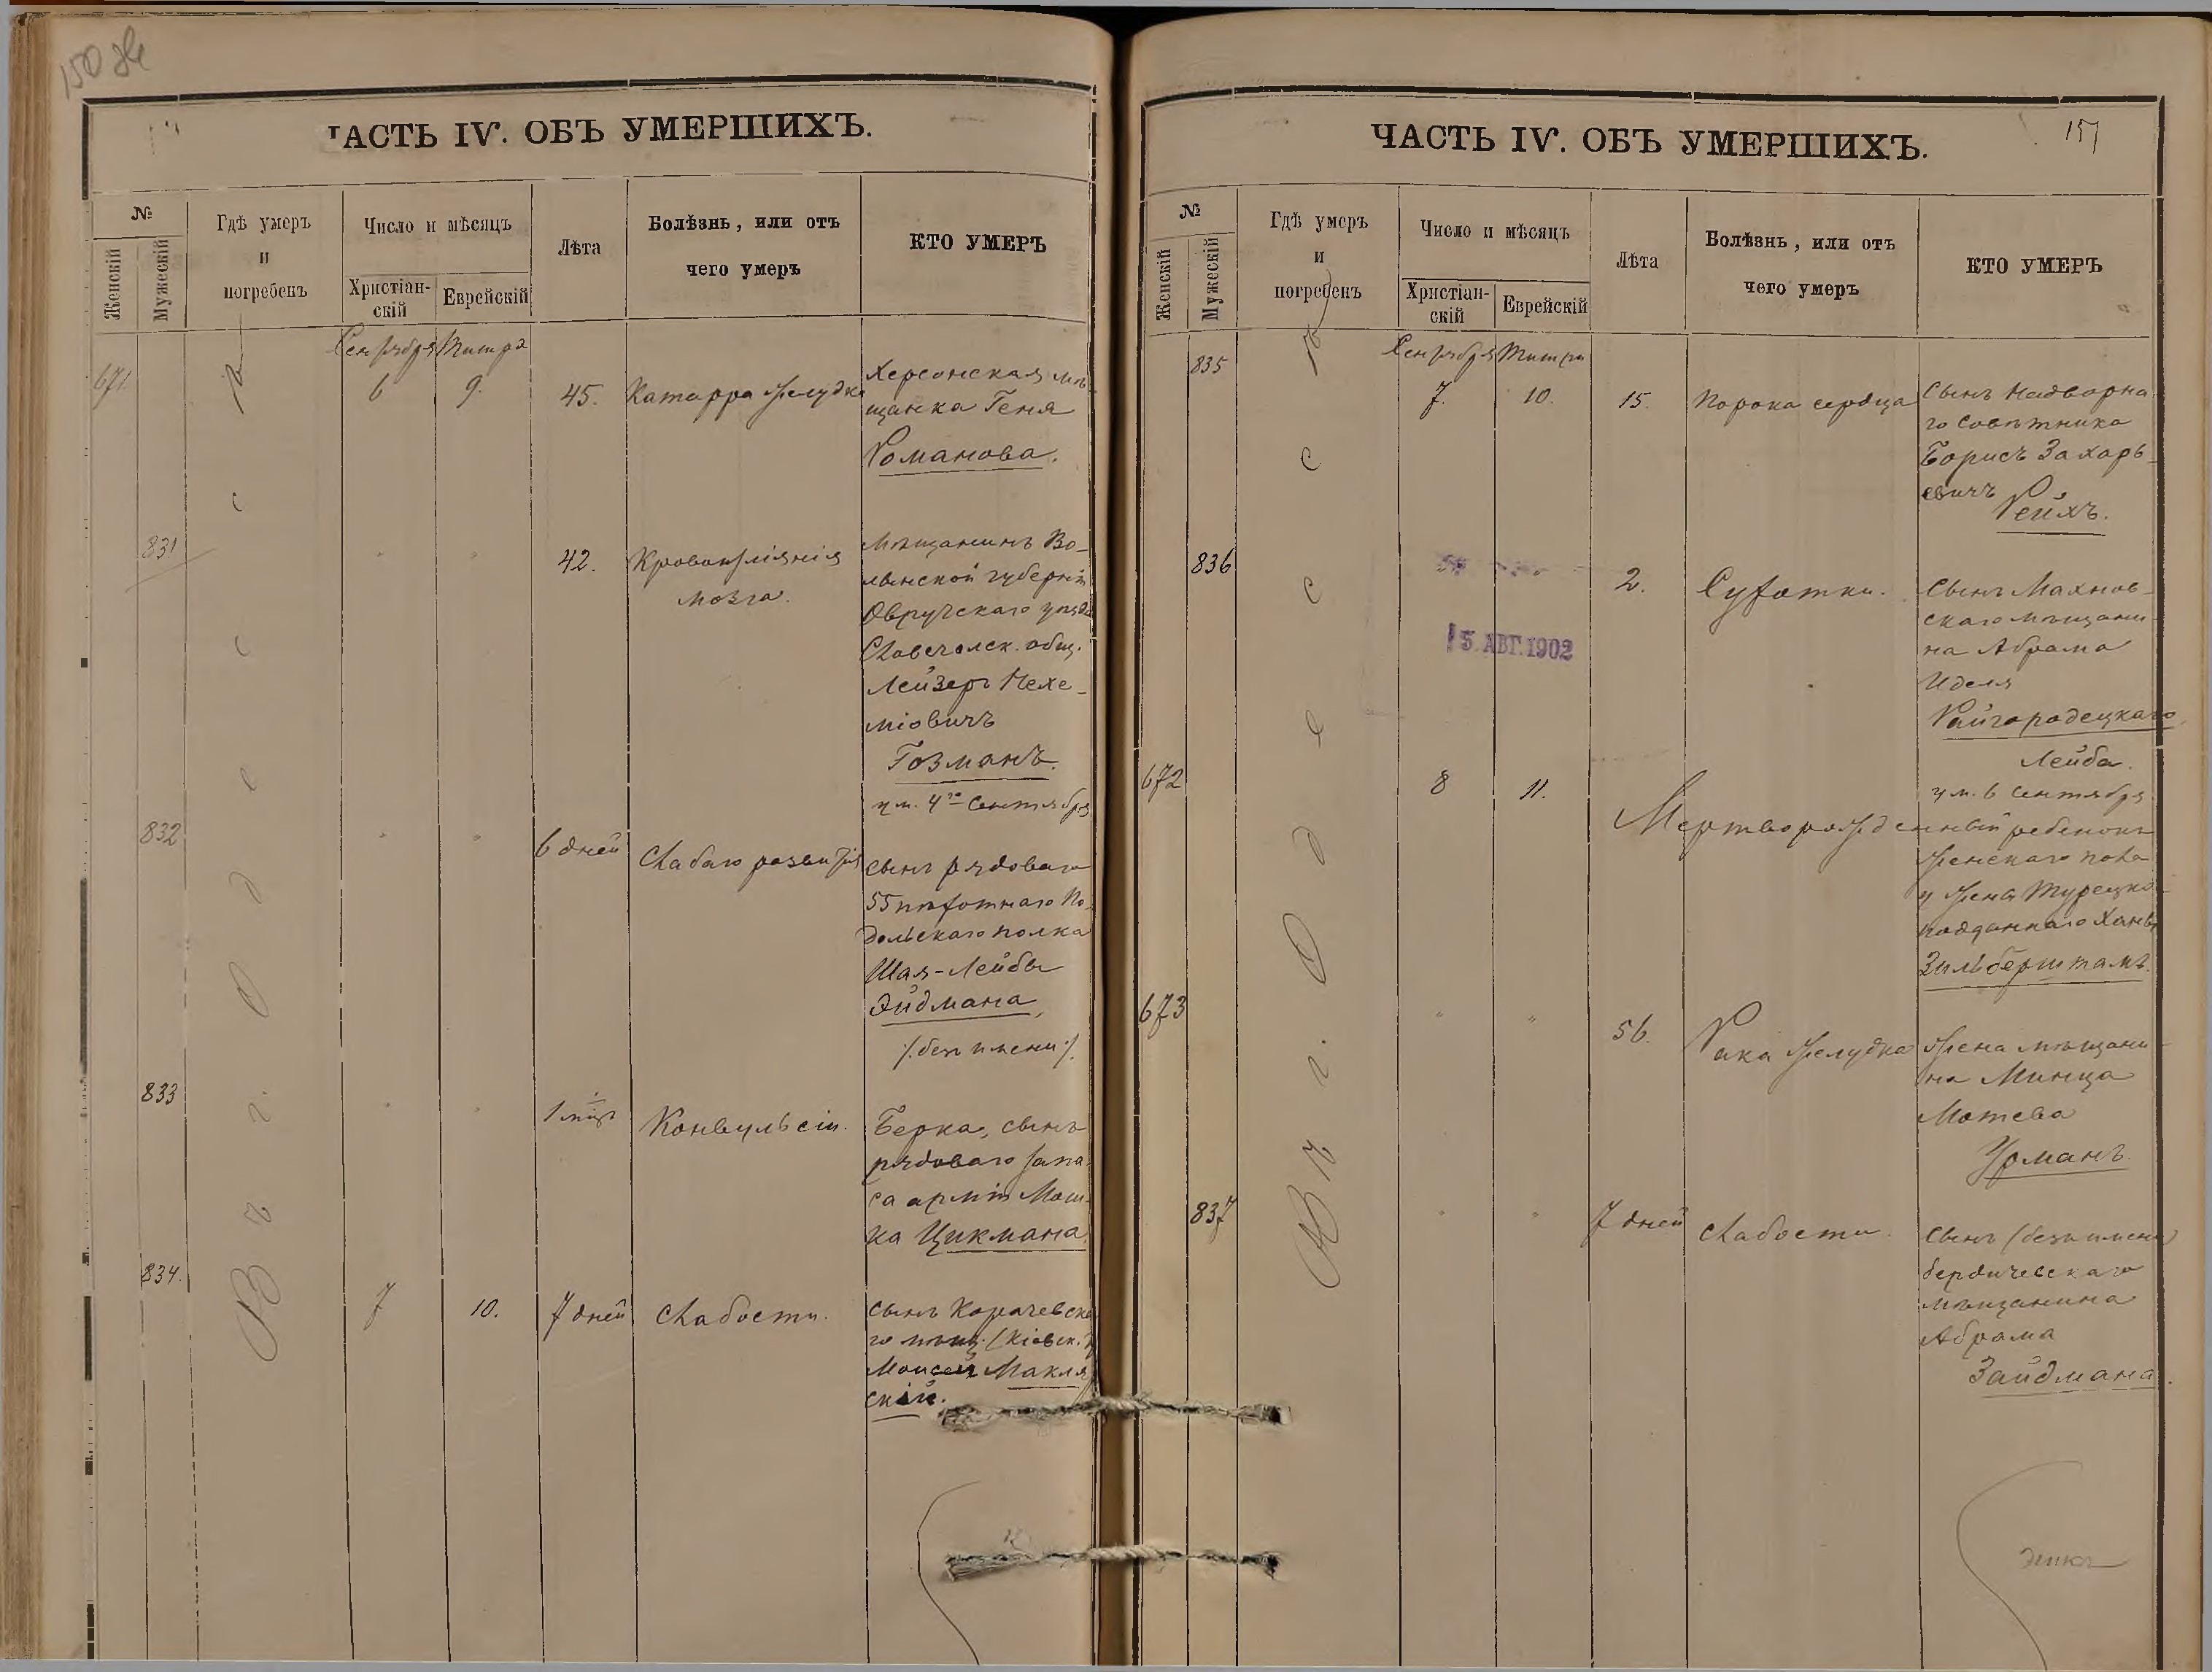 ЧАСТЬ IV. ОБЪ УМЕРШИХЪ.
№
Женскій
Мужескій
Гдѣ умеръ
и
погребенъ
Число и мѣсяцъ
Христіан-
скій
Еврейскій
Лѣта
Болѣзнь, или отъ
чего умеръ
КТО УМЕРЪ
Въ г. Одессѣ
Сентября Тишра
671
6
9.
45.
Катарра желудка
Херсонская мѣ
щанка Геня
Романова.
831
"
"
42.
Кровоизліянія
мозга.
Мѣщанинъ Во-
лынской губерніи
Овручскаго уѣзда
Словечанск. общ.
Лейзеръ Нехе-
міовичъ
Гозманъ.
ум. 4го Сентября
832
"
"
6 дней
Слабаго развитія
сынъ рядоваго
55 пѣхотнаго По-
дольскаго полка
Шая-Лейбы
Эйдмана,
/.безъ имени./
833
"
"
1 мѣс
Конвульсіи.
Берка, сынъ
рядоваго запа-
са арміи Мош-
ка Цикмана.
834.
7
10.
7 дней
Слабости.
сынъ Карачевска
го мѣщ. (Кіевск.
Моисей Макля
скій.
ЧАСТЬ IV. ОБЪ УМЕРШИХЪ.
151
№
Женскій
Мужескій
Гдѣ умеръ
и
погребенъ
Число и мѣсяцъ
Христіан-
скій
Еврейскій
Лѣта
Болѣзнь, или отъ
чего умеръ
КТО УМЕРЪ
Въ г. Одессѣ
Сентября Тишри
835
7.
10.
15.
Порока сердца
Сынъ Надворна
го Совѣтника
Борисъ Захарь-
евичъ
Рейхъ.
836
2.
Сухотки.
15. АВГ. 1902
Сынъ Махнов-
скаго мѣщани-
на Абрама
Иделя
Райгородецкаго
Лейба.
ум. 6 Сентября
672
8
11.
Мертворожденный ребенокъ
женскаго пола
у жены Турецко-
подданнаго Ханы
Зильберштамъ.
673
"
"
56.
Рака желудка
Жена мѣщани-
на Минца
Мотева
Урманъ.
837
"
"
7 дней
Слабости.
Сынъ (безъ имени)
бердичевскаго
мѣщанина
Абрама
Зайдмана.